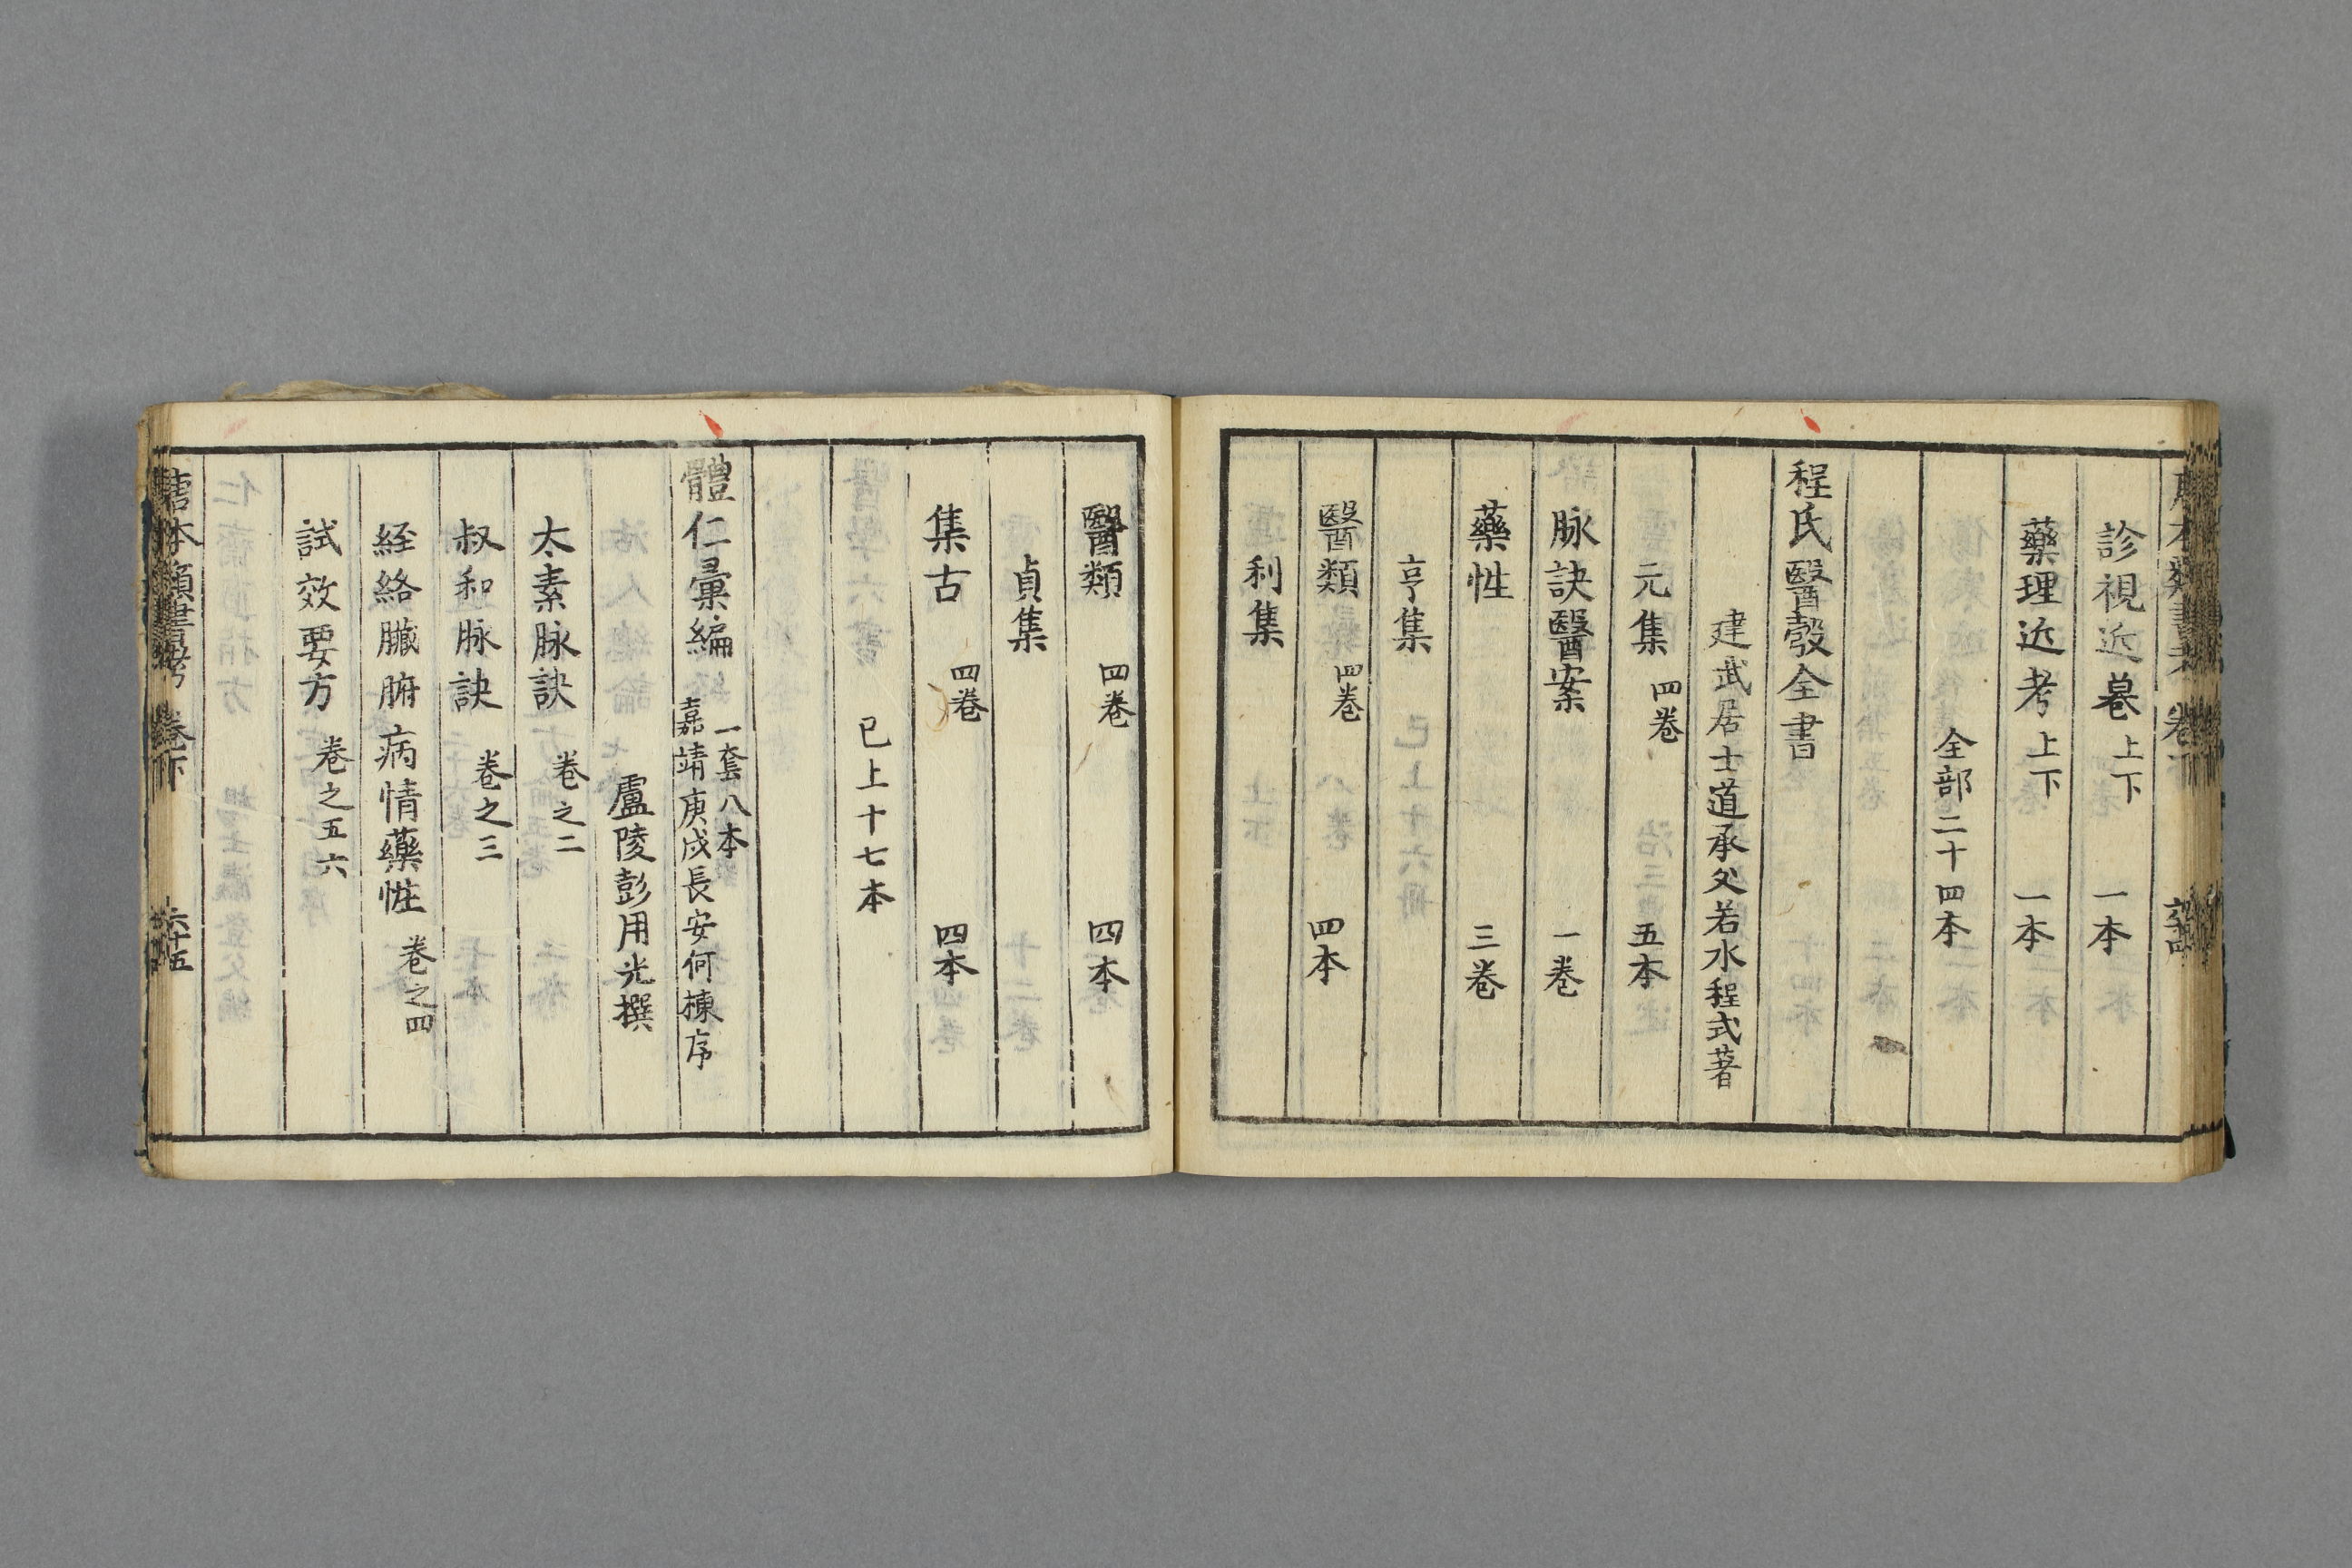 診視近纂上下 一本
藥理近考上下 一本
全部二十四本
程氏醫彀全書
建武居士道承父若水程式著
元集 四巻 五本
脉訣醫案 一巻
藥性 三巻
亨集
醫類 四巻 四本
利集
醫類 四巻 四本
貞集
集古 四巻 四本
已上十七本
體仁彙編 一套八本
嘉靖庚戌長安何棟序
盧陵彭用光撰
太素脉訣 巻之二
叔和脉訣 巻之三
経絡臟腑病情藥性 巻之四
試效要方 巻之五六
唐本類書考 巻下 六十五